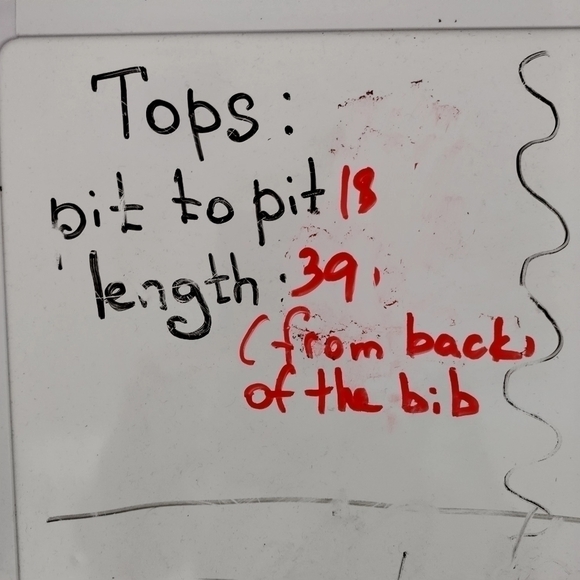 Tops:
pit to pit 18
length: 39
(from back
of the bib